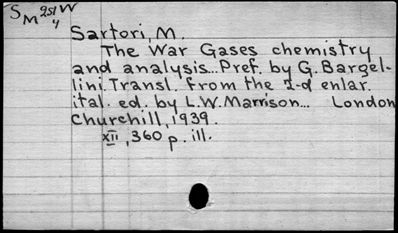 S 251 W
M 4
Sartori, M.
The War Gases chemistry
and analysis... Pref. by G. Bargel-
lini. Transl. from the 2-d enlar.
ital. ed. by L.W. Marrison... London
Churchill, 1939.
XII, 360 p. ill.